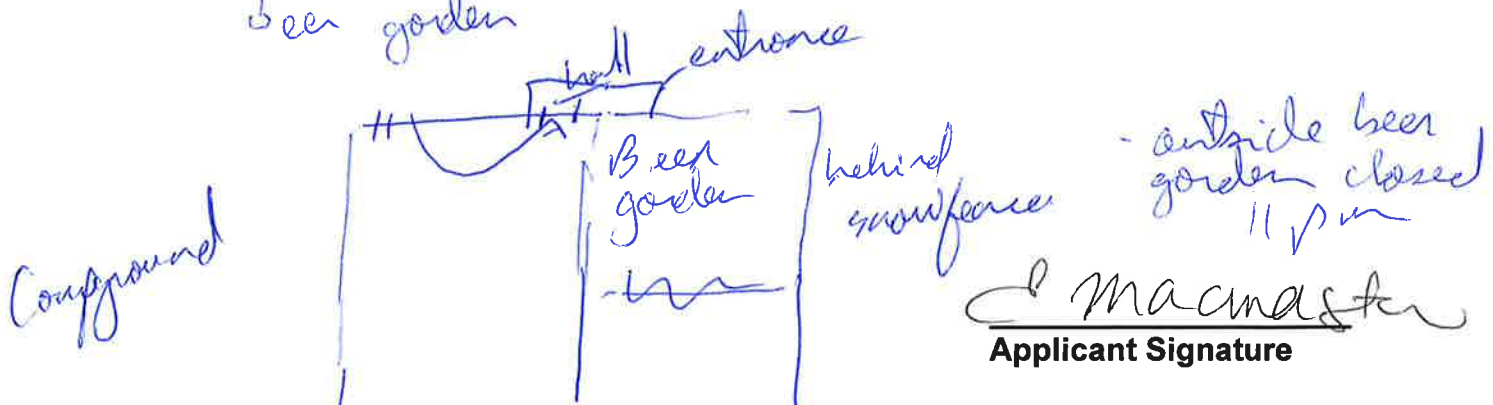 Beer garden
hall
entrance
Beer
garden
behind
snowfence
- outside beer
garden closed
11 pm
Campground
E Macmaster
Applicant Signature